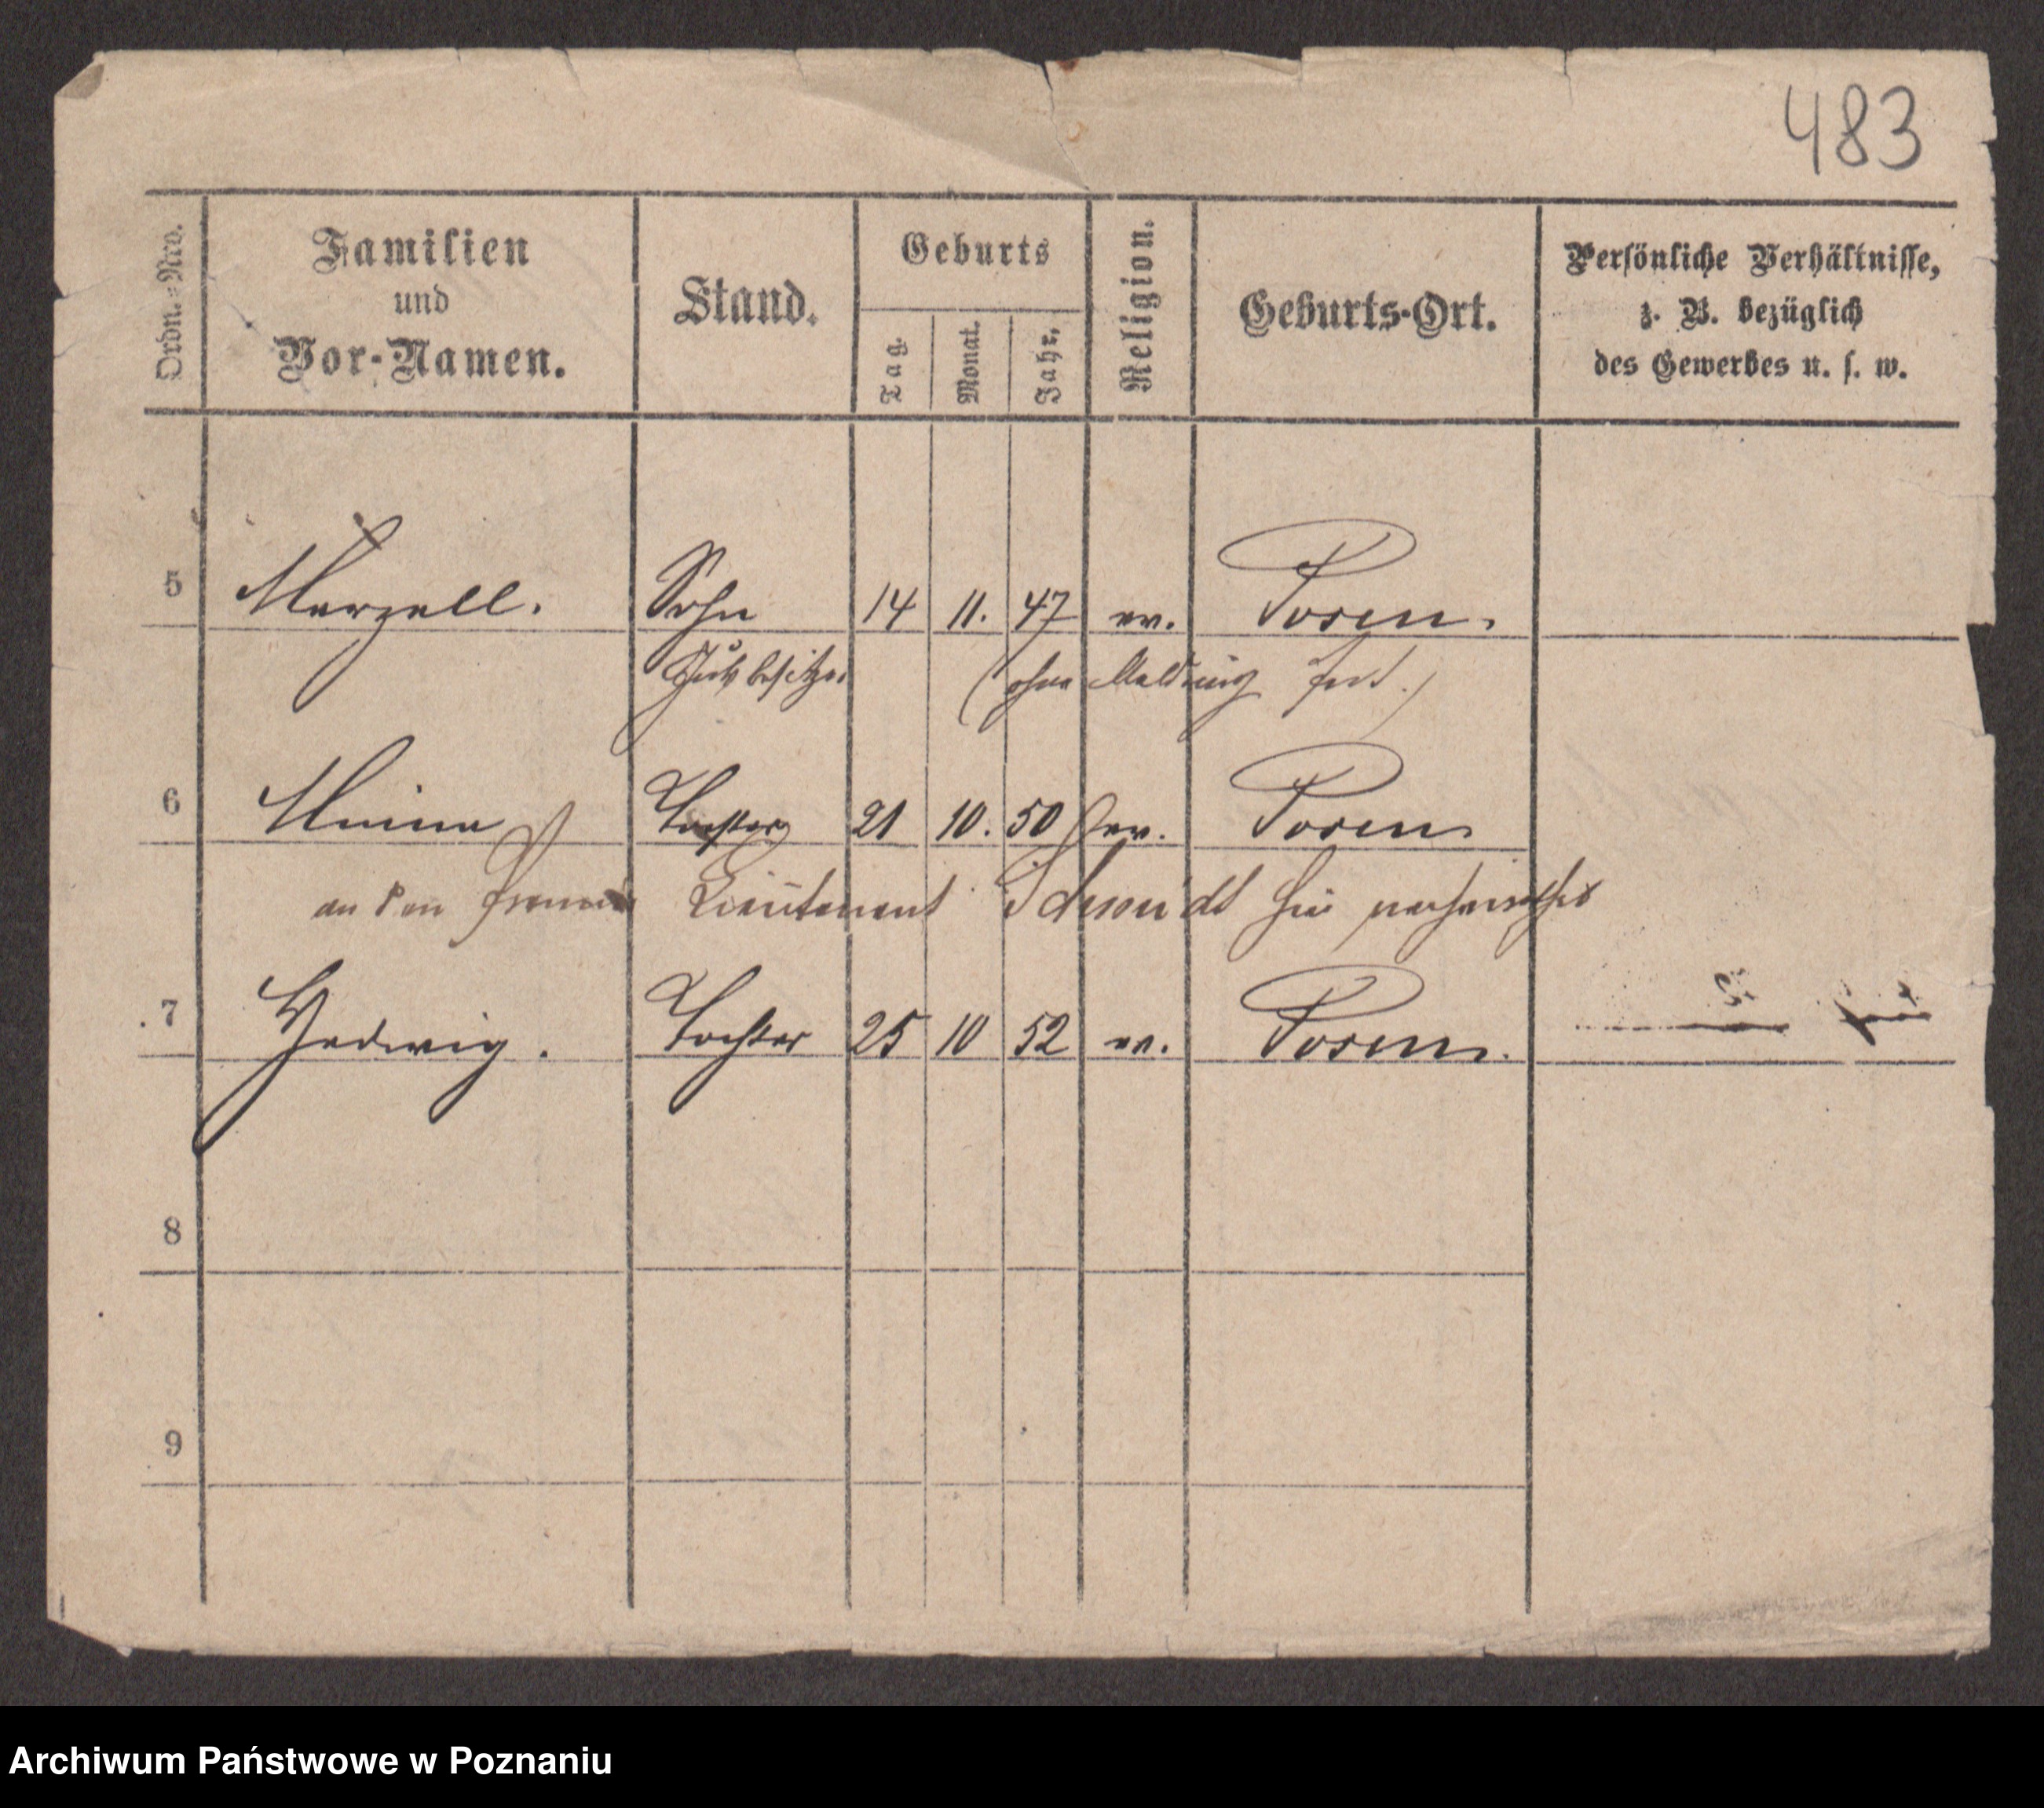 483
Ordn.-Nro.
Familien
und
Vor-Namen.
Stand.
Geburts
Tag.
Monat.
Jahr.
Religion.
Geburts-Ort.
Persönliche Verhältnisse,
z. B. bezüglich
des Gewerbes u. s. w.
5 Marzell. Sohn 14 11. 47 ev. Posen.
Gutsbesitzer (ohne Meldung fort.)
6 Minna Tochter 21 10. 50 ev. Posen
an den Premier Lieutenant Schmidt hier verheirathet
7 Hedwig. Tochter 25 10 52 ev. Posen.
8
9
Archiwum Państwowe w Poznaniu